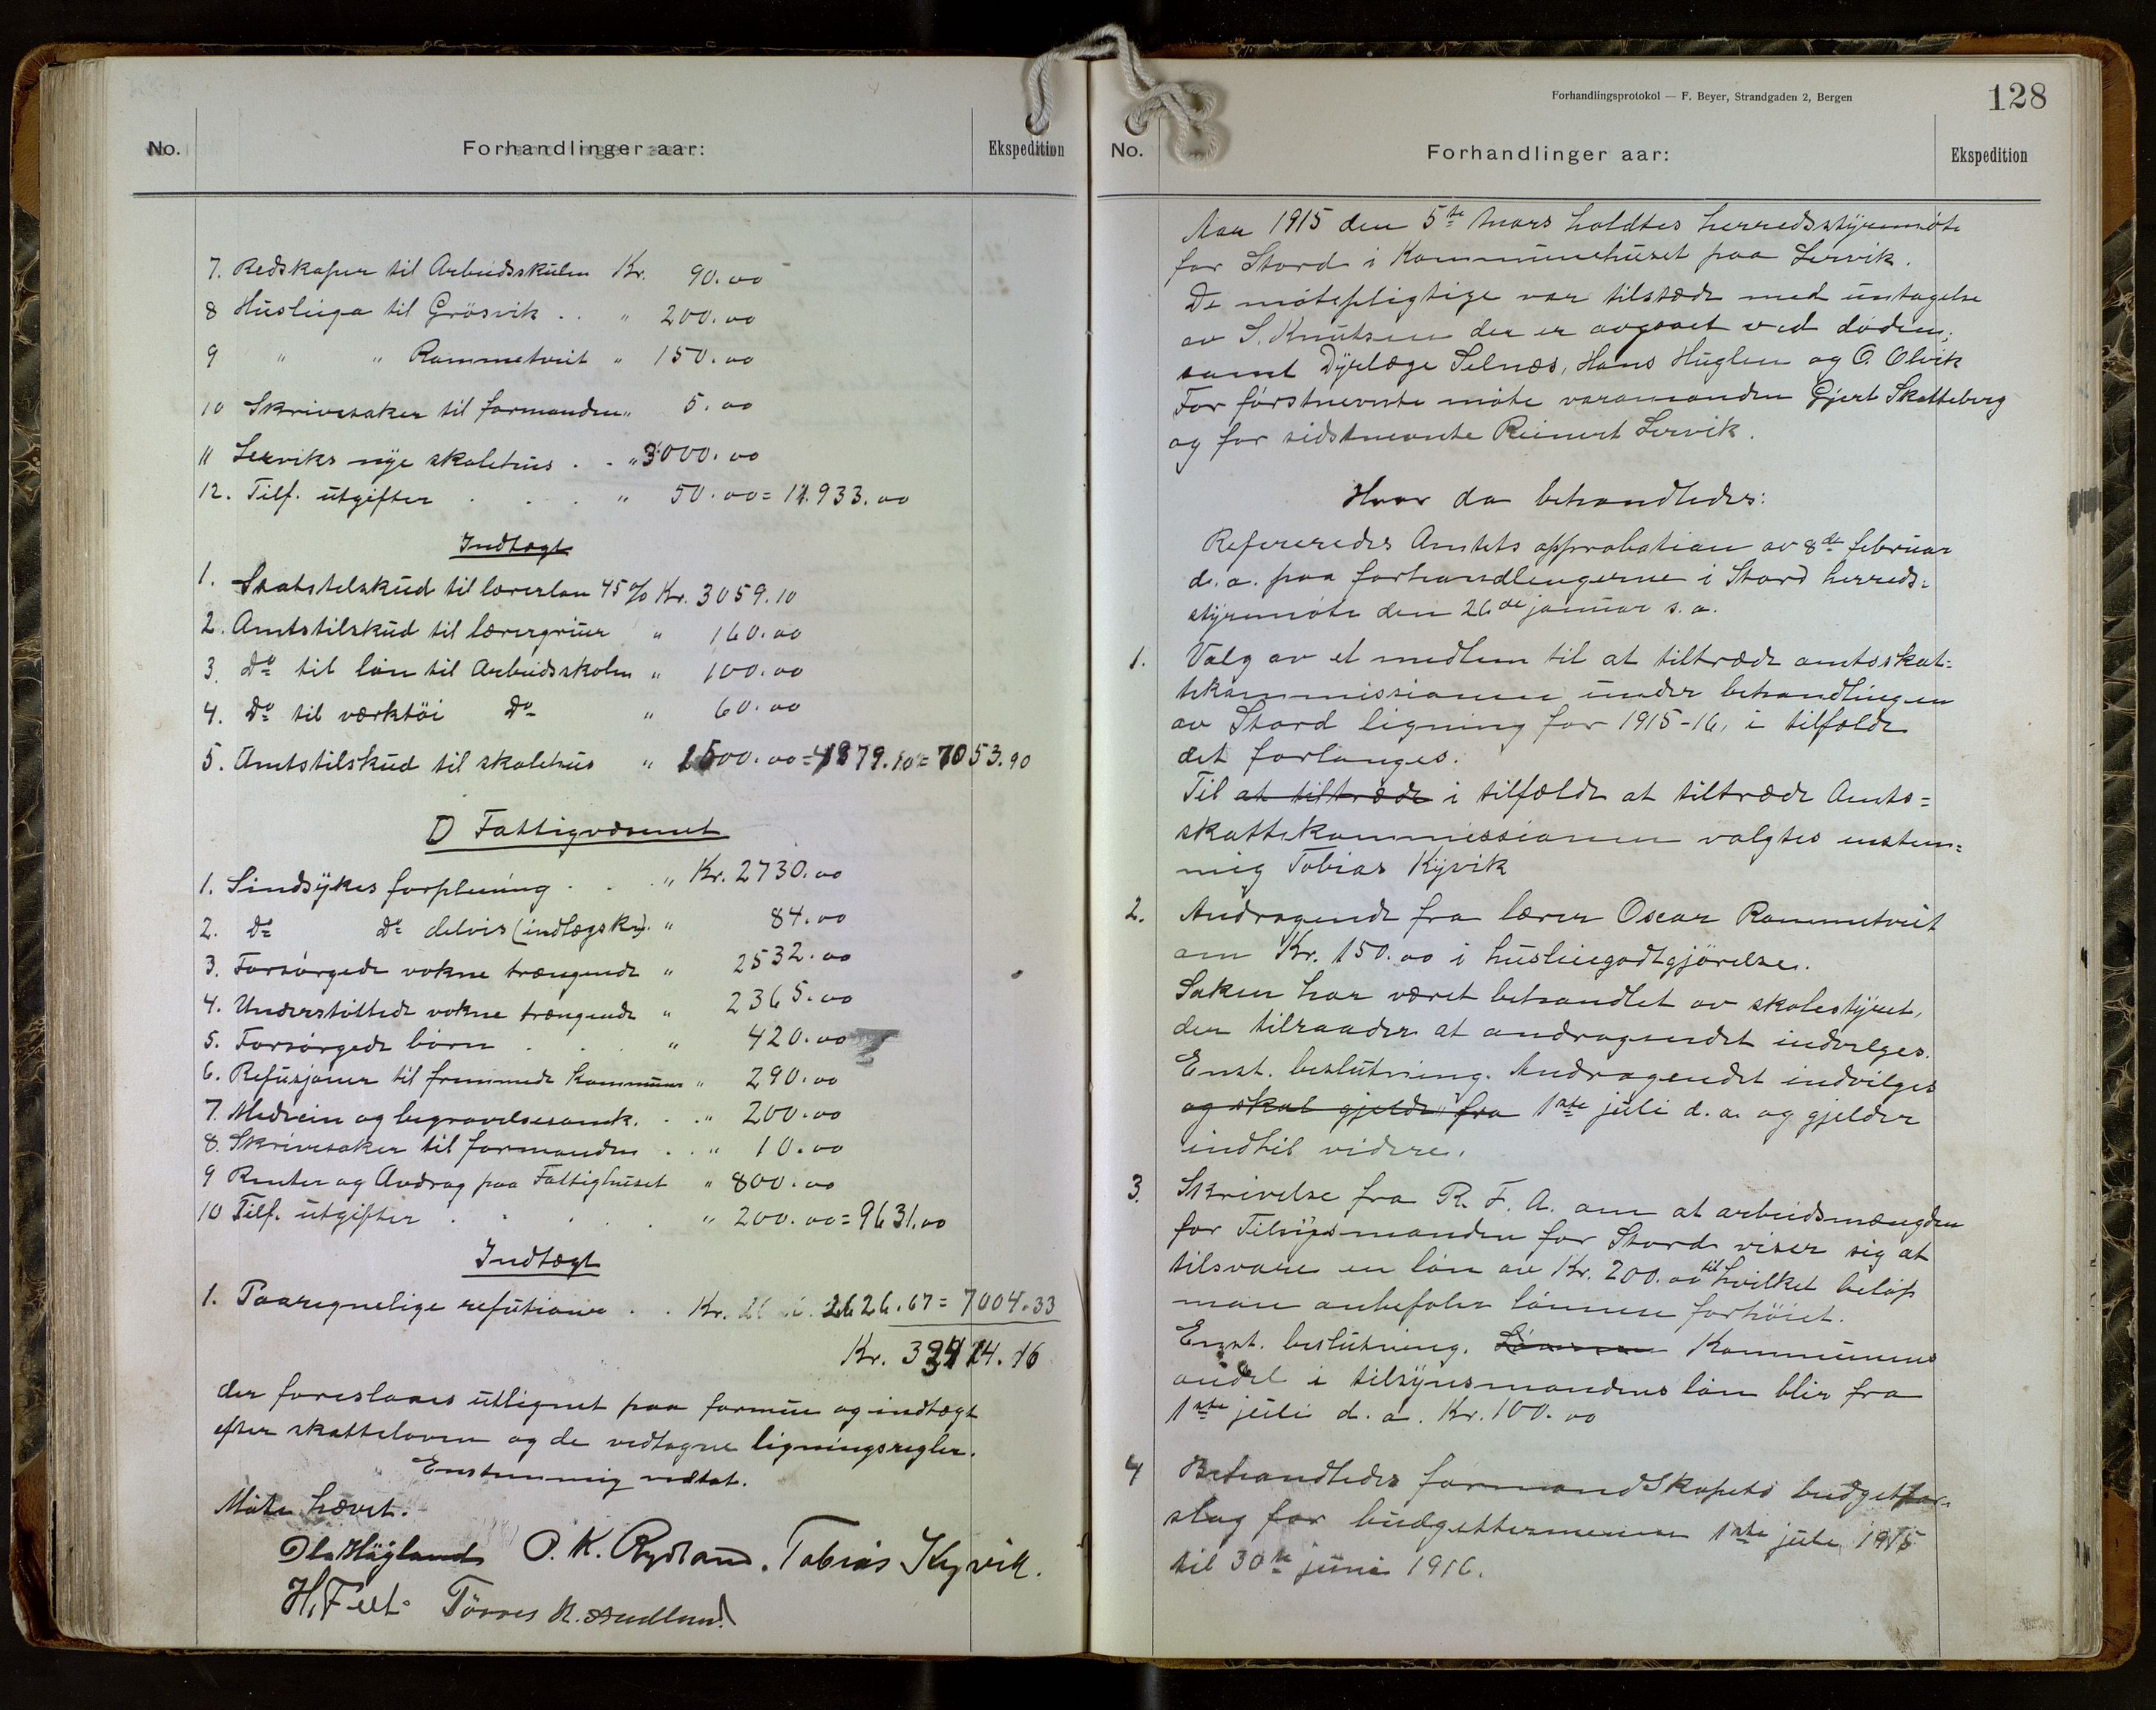 No.
Forhandlinger aar:
Ekspedition
7. Redskaper til Arbeidsskulen Kr. 90.00
8 Husleiga til Grösvik . . " 200.00
9 " " Rommetveit " 150.00
10 Skrivesaker til formanden " 5.00
11 Lerviks nye skolehus . . " 3000.00
12. Tilf. utgifter . . . " 50.00 = 11.933.00
Indtægt
1. Statstilskud til lærerløn 45% Kr. 3059.10
2. Amtstilskud til lærergruer " 160.00
3. Do til løn til Arbeidsskolen " 100.00
4. Do til værktöi Do " 60.00
5. Amtstilskud til skolehus " 1500.00 = 4879.10 = 7053.90
D Fattigvæsenet
1. Sindsykes forpleining . . " Kr. 2730.00
2. Do Do delvis (indlægskr). " 84.00
3. Forsørgede voksne trængende " 2532.00
4. Understøttede voksne trængende " 2365.00
5. Forsørgede børn . . . " 420.00
6. Refusjoner til fremmede kommuner " 290.00
7. Medicin og begravelsesomk. . . " 200.00
8. Skrivesaker til formanden . . " 10.00
9 Renter og Avdrag paa Fattighuset " 800.00
10 Tilf. utgifter . . . . " 200.00 = 9631.00
Indtægt
1. Paaregnelige refutioner . . Kr. 2626.67 = 7004.33
Kr.
der foreslaaes utlignet paa formue og indtægt
efter skatteloven og de vedtagne ligningsregler.
Enstemmig vedtat.
Møte hævet.
Ola Høyland O. K. Rydland. Tobias Kyvik.
H. Feet. Torres N. Aadland
Forhandlingsprotokol — F. Beyer, Strandgaden 2, Bergen
128
No.
Forhandlinger aar:
Ekspedition
Aar 1915 den 5te mars holdtes herredsstyremøte
for Stord i Kommunehuset paa Lervik.
De møtepligtige var tilstæde med untagelse
av S. Knutsen der er avgaaet ved døden,
samt Dyrlæge Selnæs, Hans Huglen og O. Olvik
For førstnevnte møte varamanden Gjert Skatteberg
og for sidstnevnte Reinert Lervik.
Hvor da behandledes:
Refereredes Amtets approbation av 8de februar
d. a. paa forhandlingerne i Stord herreds-
styremøte den 26de januar s. a.
1. Valg av et medlem til at tiltræde amtsskat-
tekommissionen under behandlingen
av Stord ligning for 1915-16, i tilfælde
det forlanges.
Til at tiltræde i tilfælde at tiltræde Amts-
skattekommissionen valgtes enstem-
mig Tobias Kyvik
2. Andragende fra lærer Oscar Rommetveit
om Kr. 150.00 i husleiegodtgjørelse.
Saken har været behandlet av skolestyret,
der tilraader at andragendet indvilges.
Enst. beslutning. Andragendet indvilges
og skal gjelde fra 1ste juli d. a. og gjelder
indtil videre.
3. Skrivelse fra R. F. A. om at arbeidsmængden
for Tilsynsmanden for Stord viser sig at
tilsvare en løn av Kr. 200.00 til hvilket beløp
man anbefaler lønnen forhöiet.
Enst. beslutning. Lønnen Kommunens
andel i tilsynsmandens løn blir fra
1ste juli d. a. Kr. 100.00
4 Behandledes formandskapets budgetfor-
slag for budgetterminen 1ste juli 1915
til 30te juni 1916.